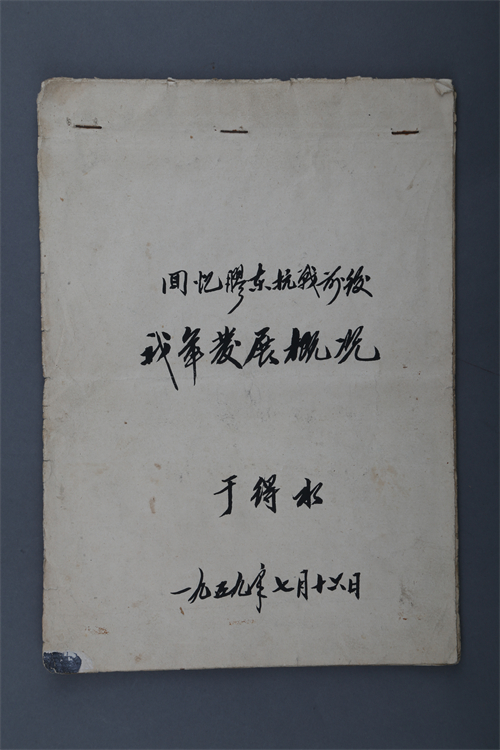 回忆膠东抗战前後
我军发展概况
于得水
一九五九年七月十六日